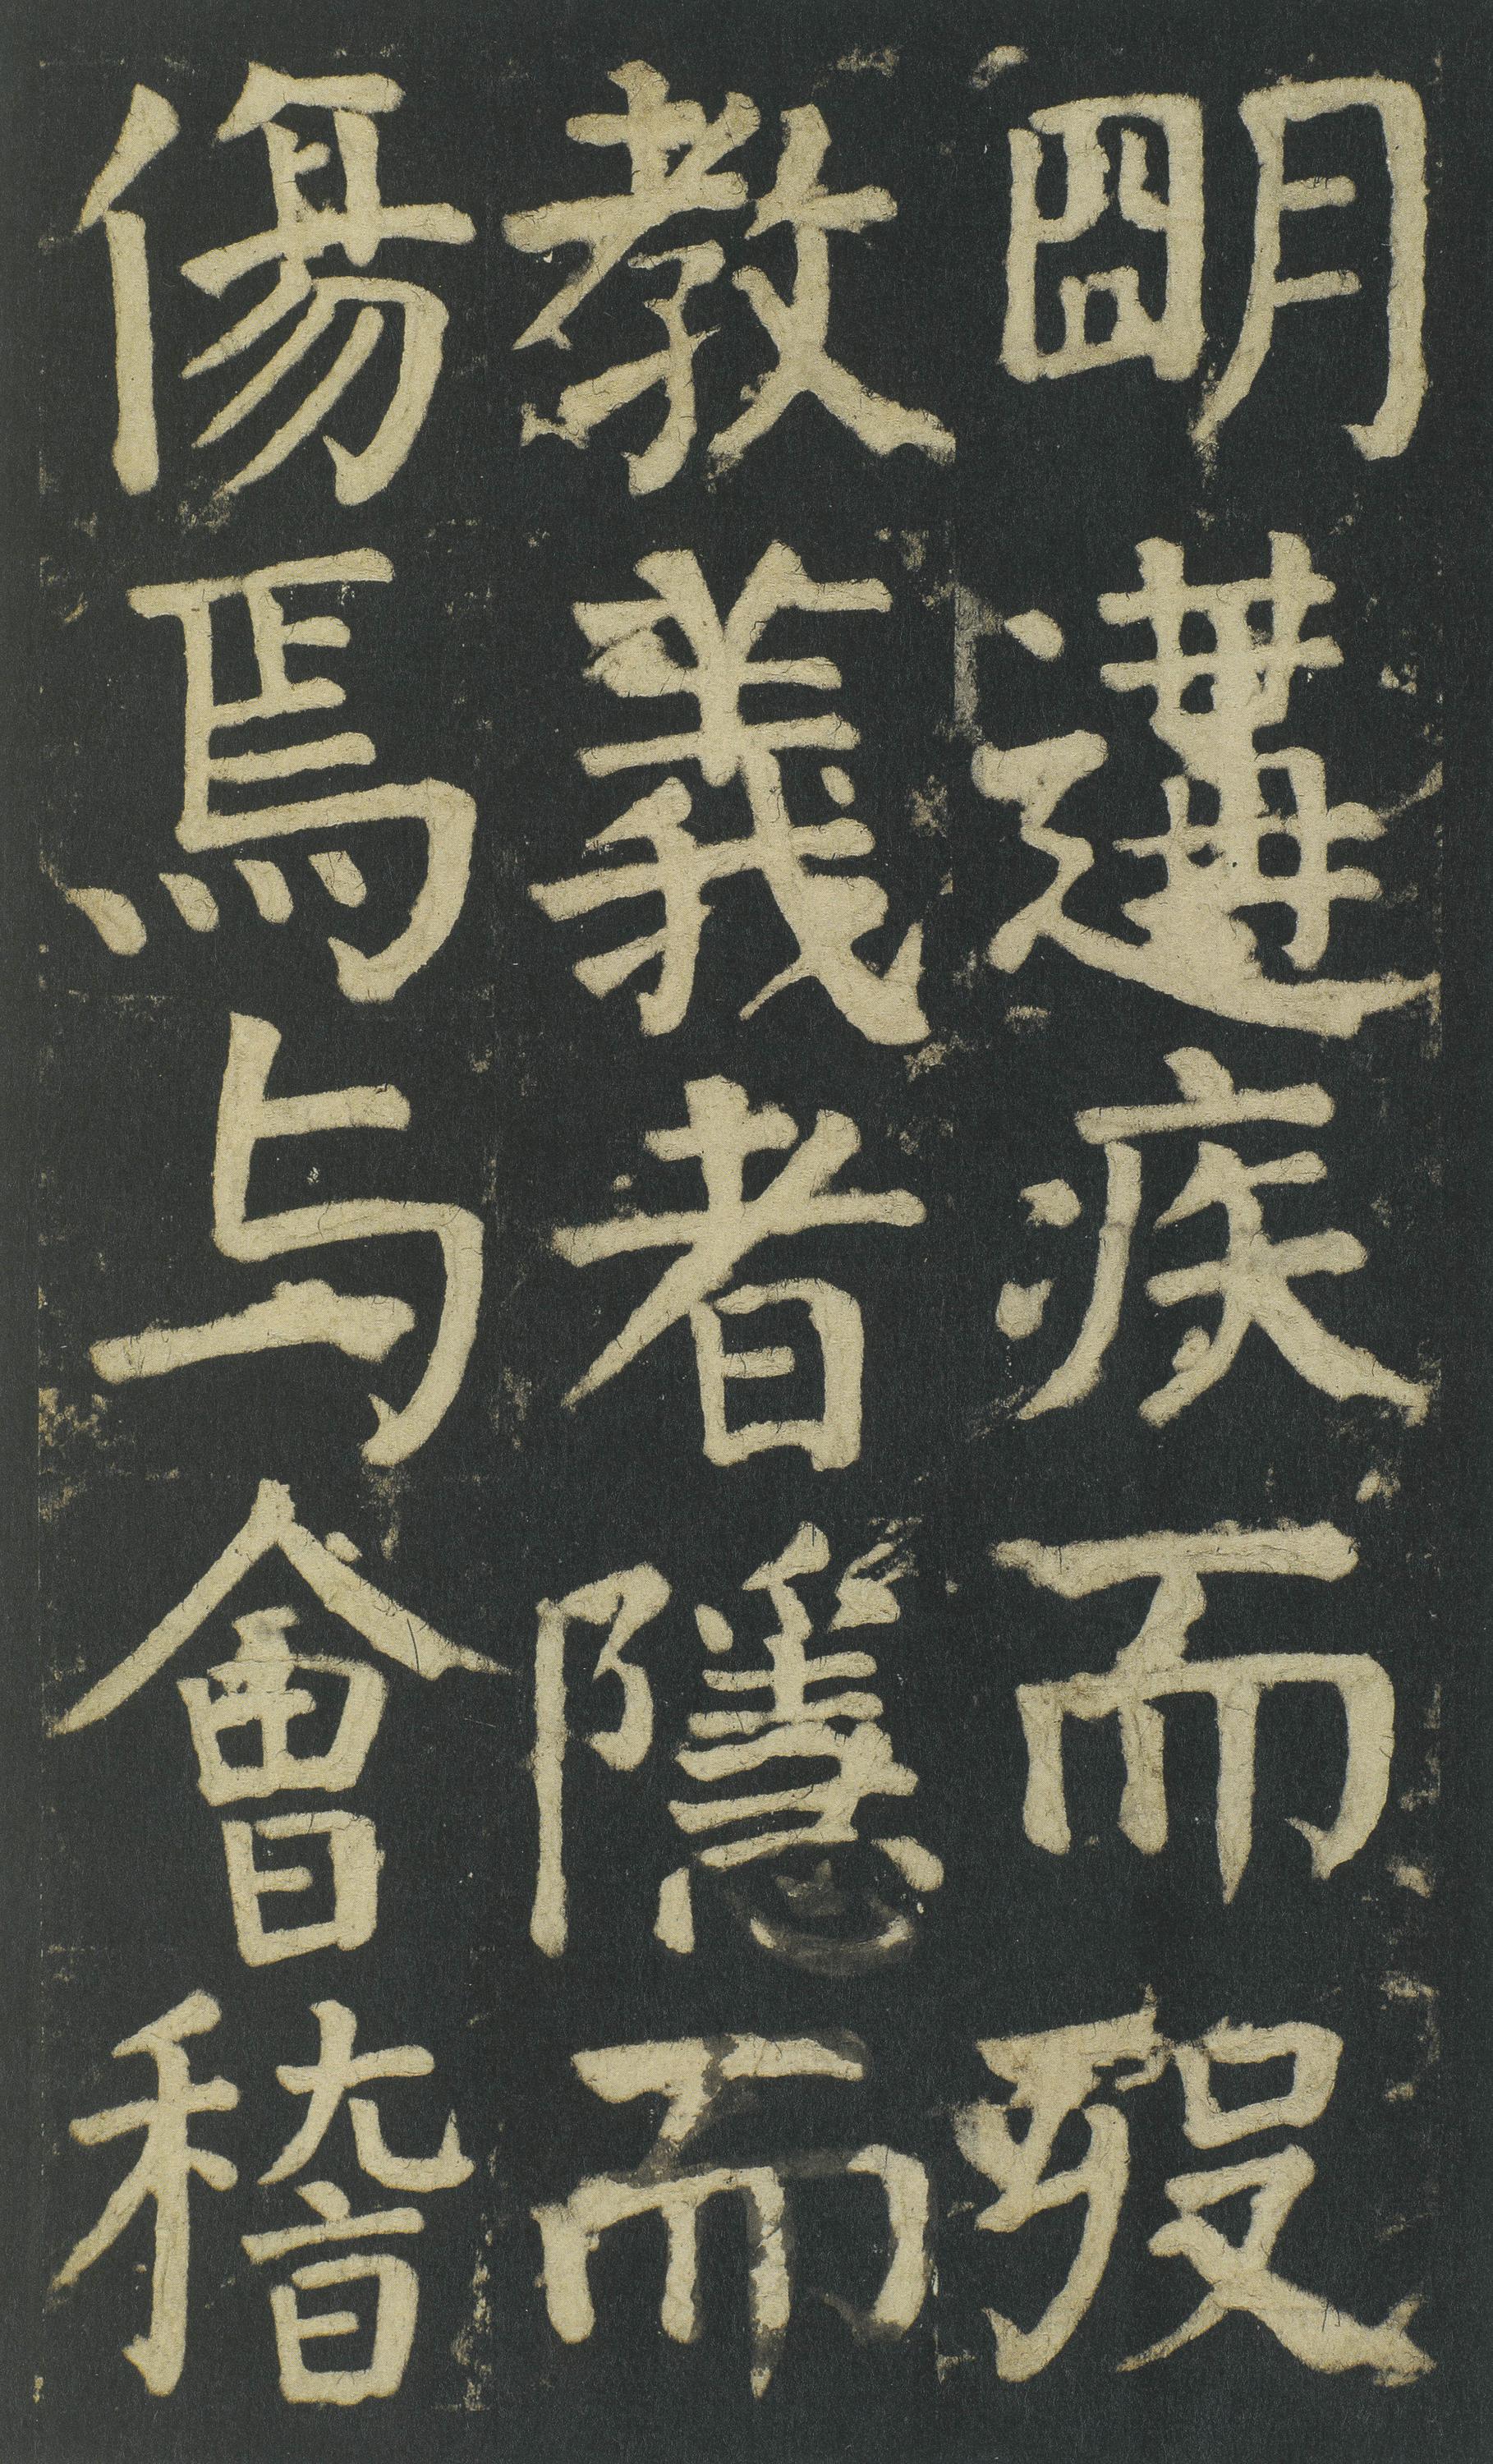 明遘疾而歿
教義者隱而
傷焉与會稽